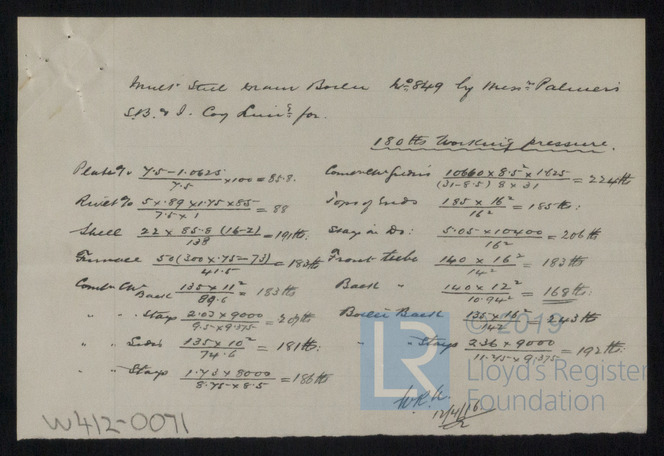 Mult. Steel Boiler No 849 by Messrs Palmer's
S.B. & I. Coy Limd for
180 lbs Working pressure.
Plate % (7.5 - 1.0625)/7.5 × 100 = 85.8.
Rivet % (5 × .89 × 1.75 × 85)/(7.5 × 1) = 88
Shell (22 × 85.8 (16-2))/138 = 191 lbs:
Furnace 50 (300 × .75 - 73)/41.5 = 183 lbs
Comb: Ch Back (135 × 11²)/89.6 = 183 lbs
" " Stays (2.03 × 9000)/(9.5 × 9.375) = 205 lbs
" " Sides (135 × 10²)/74.6 = 181 lbs:
" " Stays (1.73 × 8000)/(8.75 × 8.5) = 186 lbs
Comb: Ch Girders (10660 × 8.5² × 1.625)/((31-8.5) 8 × 31) = 224 lbs
Tops of Ends (185 × 16²)/16² = 185 lbs:
Stays in Do: (5.05 × 10400)/16² = 206 lbs
Front tube (140 × 16²)/14² = 183 lbs
Back " (140 × 12²)/10.94² = 168 lbs:
Boiler Back (135 × 16²)/142 = 243 lbs
" " Stays (2.36 × 9000)/(11.75 × 9.375) = 192 lbs:
12/4/16
W412-0071
© 2019
LR
Lloyd's Register
Foundation